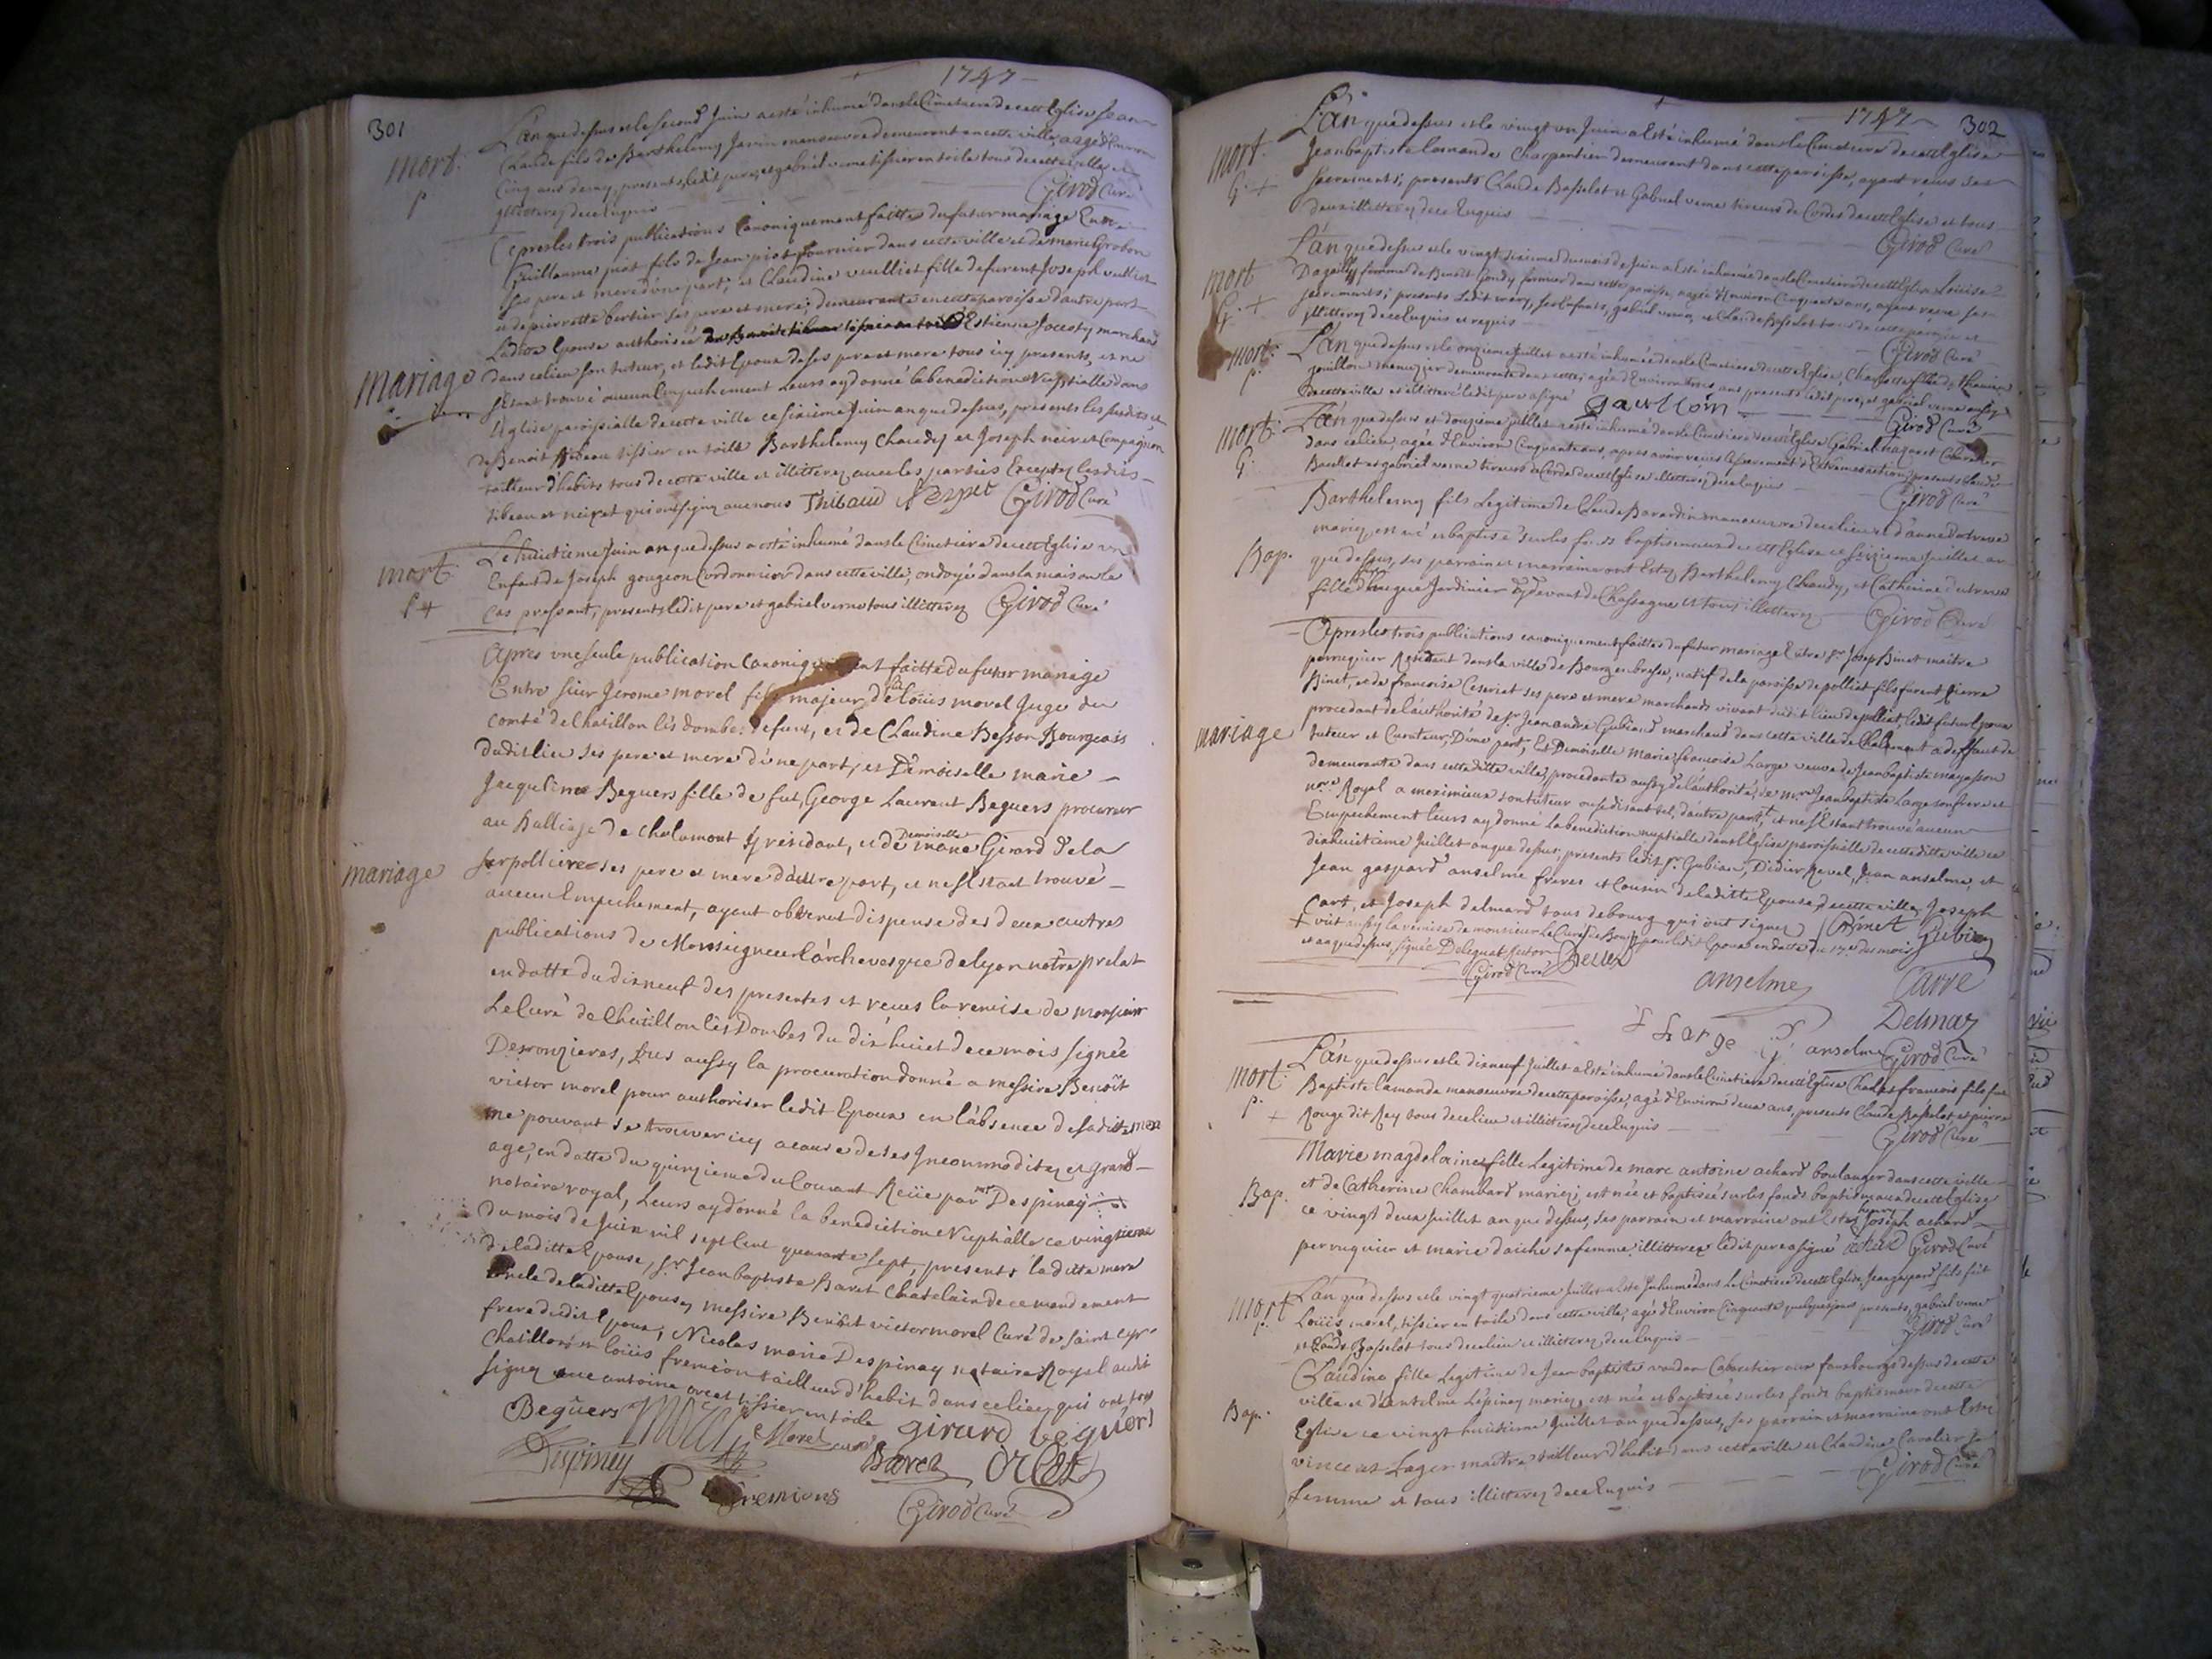 1747
301
mort.
p
L'an que dessus et le second Juin a esté inhumé dans le Cimetiere de cette Eglise Jean
Claude fils de Barthelemy Janin manoeuvre demeurant en cette ville, agé d'Environ
Cinq ans demy, presents, ledit pere, et gabriel verne tissier en toile tous de cette ville et
illitterez de ce Enquis
Girod Curé
Apres les trois publications Canoniquement faittes du futur mariage Entre
Guillaume piot fils de Jean piot fournier dans cette ville et de marie Grobon
ses pere et mere d'une part, et Claudine vuilliet fille de furent Joseph vuilliet
et de pierrette bertier ses pere et mere; demeurante en cette paroisse d'autre part
Ladite Epouse authorisée Estienne Jocosty marchand
dans ce lieu son tuteur, et ledit Epoux de ses pere et mere tous icy presents, et ne
mariage
s'étant trouvé aucun Empechement Leurs ay donné la benediction Nuptialle dans
l'Eglise paroissialle de cette ville ce sixieme Juin an que dessus, presents les susdits et
de Benoit tibeau tissier en toile Barthelemy Chaudy et Joseph neiret Compagnon
tailleur d'habits tous de cette ville et illitterez avec les parties Exceptez lesdits
tibeau et neiret qui ont signez avec nous Thibaud Girod Curé
mort.
p +
Le huictieme Juin an que dessus a esté inhumé dans le Cimetiere de cette Eglise un
Enfant de Joseph gougeon Cordonnier dans cette ville, ondoyé dans la maison le
Cas pressant, presents ledit pere et gabriel verne tous illitterez Girod Curé
Apres une seule publication Canoniquement faitte du futur mariage
Entre sieur Jerome morel fils majeur de Sr Loüis morel Juge du
Comté de Chatillon les Dombes defunt, et de Claudine Besson Bourgeois
dudit lieu ses pere et mere d'une part, et Demoiselle marie
Jacqueline Beguers fille de fut, George Laurent Beguers procureur
au Balliage de Chalamont y residant, et de Demoiselle marie Girard de la
mariage
serpolliere ses pere et mere d'autre part, et ne s'Estant trouvé
aucun Empechement, ayant obtenus dispense des deux autres
publications de Monseigneur l'archevesque de lyon notre prelat
en datte du dixneuf des presentes et veues la remise de monsieur
Le Curé de Chatillon les Dombes du dix huict de ce mois signée
Desronzieres, Vus aussy la procuration donné a messire Benoît
victor morel pour authoriser ledit Epoux en l'absence de sa ditte mere
ne pouvant se trouver icy a cause de ses Incommoditez et grand
age, en datte du quinzieme du Courant Reüe par mre Despinay
notaire royal, Leurs ay donné la benediction Nuptialle ce vingtieme
du mois de Juin mil sept Cent quarante sept, presents la ditte mere
de laditte Epouse, sr Jean baptiste Baret Chatelain de ce mandement
oncle de laditte Epouse, messire Benoît victor morel Curé de saint cyr
frere dudit Epoux, Nicolas marie Despinay notaire Royal audit
Chatillon, et loüis fremion tailleur d'habit dans ce lieu, qui ont tous
signez avec antoine orcet tissier en toile
Beguers Morel Morel curé girard beguers
Despiney Baret Orcet
fremions
Girod Curé
1747
302
mort.
G. +
L'an que dessus et le vingt un Juin a Esté inhumé dans le Cimetiere de cette Eglise
Jean baptiste lamande Charpentier demeurant dans cette paroisse, ayant receus ses
sacrements; presents Claude Basselat et Gabriel verne tireurs de Cordes de cette Eglise et tous
deux illitterez de ce Enquis
Girod Curé
mort
G. +
L'an que dessus et le vingt sixieme du mois de Juin a Esté inhumée dans le Cimetiere de cette Eglise Loüise
Dagailly femme de Benoît gondy fermier dans cette paroisse, agée d'Environ Cinquante ans, ayant receu ses
sacrements; presents Ledit mary, ses Enfants, gabriel verne, et Claude Basselat tous de cette paroisse et
illitterez de ce Enquis et requis
Girod Curé
mort.
p.
L'an que dessus et le onzieme Juillet a esté inhumée dans le Cimetiere de cette Eglise, Charlotte fille de
gouillon menuizier demeurante dans cette, agée d'Environ trois ans presents ledit pere, et gabriel verne aussy
de cette ville et illitteré ledit pere a signé gaullion
Girod Curé
mort.
G.
L'an que dessus et douzieme Juillet a esté inhumé dans le Cimetiere de cette Eglise Gabriel nagaret Cabaretier
dans ce lieu, agé d'Environ Cinquante ans, apres avoir receus le sacrement d'Extreme onction; presents Claude
Basellat et gabriel verne tireurs de Corde de cette Eglise illitterez de ce Enquis
Girod Curé
Bap.
Barthelemy fils Legitime de Claude Barardin manoeuvre de ce lieu et d'anne dutrave
mariez, est né et baptisé sur les fonds baptismaux de cette Eglise ce seizieme Juillet an
que dessus, ses parrain et marraine ont Estez Barthelemy Chaudy, et Catherine dutrave
fille d'hugue Jardinier cy devant de Chassagne et tous illitterez Girod Curé
Apres les trois publications canoniquement faittes du futur mariage Entre sr Josep Binet maitre
perruquier Residant dans la ville de Bourg en bresse, natif de la paroisse de polliat fils furent pierre
Binet, et de francoise Ceseriat ses pere et mere marchands vivant dudit lieu de polliat ledit futur Epoux
procedant de l'authorité de sr Jean andré Gubiand marchand dans cette ville de Chalamont a deffaut de
mariage
tuteur et Curateur, D'une part, Et Demoiselle Marie francoise Large veuve de Jean baptiste mayasson
demeurante dans cette ditte ville, procedante aussy de l'authorité, de mre Jean baptiste Large son frere et
nore Royal a meximieux son tuteur ou se disant tel, d'autre part, + et ne s'Estant trouvé aucun
Empechement leurs ay donné La benediction nuptialle dans l'Eglise paroissialle de cette ditte ville ce
dixhuictieme Juillet an que dessus; presents ledit sr Gubian, Didier Revel, Jean anselme, et
Jean gaspard anselme freres et Cousin de laditte Epouse, de cette ville, Joseph
Cart, et Joseph delmard tous de bourg qui ont signez Binet Gubian
+ veüt aussy la remise de monsieur Le Curé de Bourg pour ledit Epoux en datte du 17e du mois
et an que dessus, signée Deleguat pastor Revel
Girod Curé
anselme Carre
Delmaz
F Large J G anselme Girod Curé
mort.
p.
+
L'an que dessus et le dixneuf Juillet a Esté inhumé dans le Cimetiere de cette Eglise Charles francois fils fut
Baptiste lamande manoeuvre de cette paroisse, agé d'Environ deux ans, presents Claude Basselat, et pierre
Rouge dit Rey tous de ce lieu et illitterez de ce Enquis
Girod Curé
Bap.
Marie magdelaine fille Legitime de marc antoine achard boulanger dans cette ville
et de Catherine Chambard mariez; est née et baptisée sur les fonds baptismaux de cette Eglise
ce vingt deux Juillet an que dessus, ses parrain et marraine ont Estez henry Joseph achard
perruquier et marie daiche sa femme illitterez ledit pere a signé achard Girod Curé
mort
p.
L'an que dessus et le vingt quatrieme Juillet a Esté Inhumé dans Le Cimetiere de cette Eglise, Jean gaspard fils fut
Loüis morel, tissier en toile dans cette ville, agé d'Environ Cinquante quelques jours presents, gabriel verne
et Claude Basselat tous de ce lieu et illitterez de ce Enquis
Girod Curé
Bap.
Claudine fille Legitime de Jean baptiste vandan Cabaretier aux fauxbourgs dessus de cette
ville et d'anselme Lépinay mariez, est née et baptisée sur les fonds baptismaux de cette
Eglise ce vingt huictieme Juillet an que dessus, ses parrain et marraine ont Estez
vincent Lager maitre tailleur d'habit dans cette ville et Claudine Cavalier sa
femme et tous illitterez de ce Enquis
Girod Curé